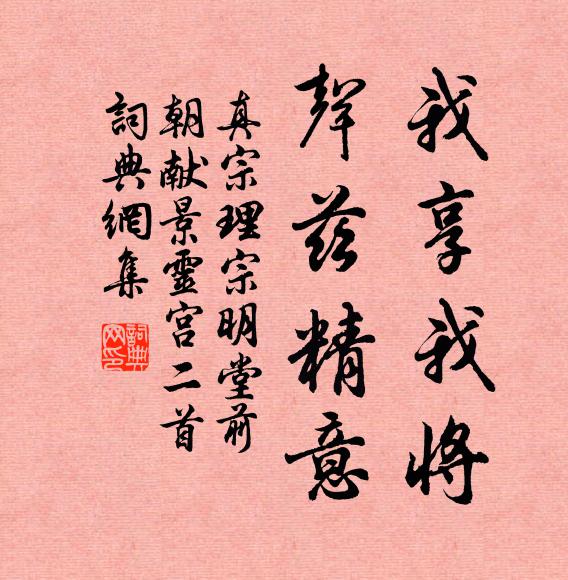 我享我將
聲茲精意
真宗理宗明堂前
朝献景靈宫二首
詞典網集
詞典网印